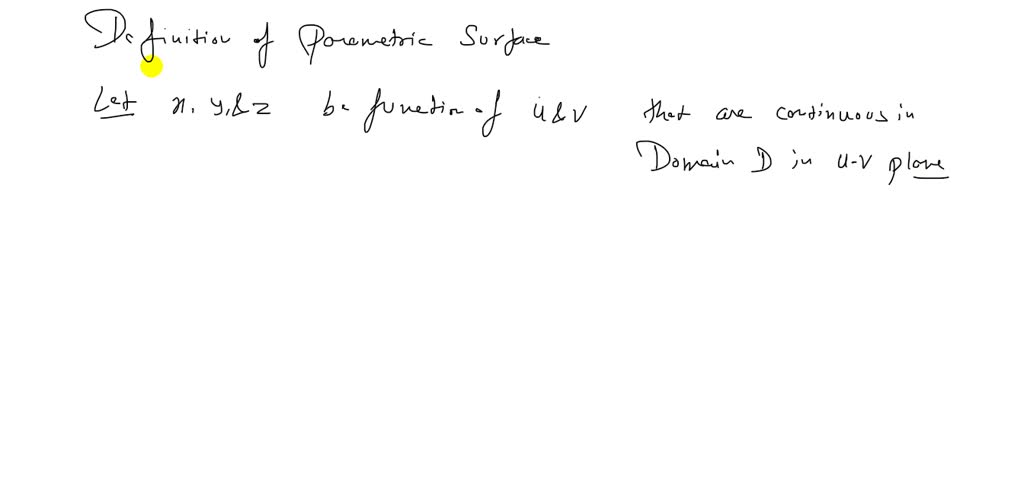 Definition of Parametric Surface
Let x, y, & z be function of u & v that are continuous in
Domain D in u-v plane